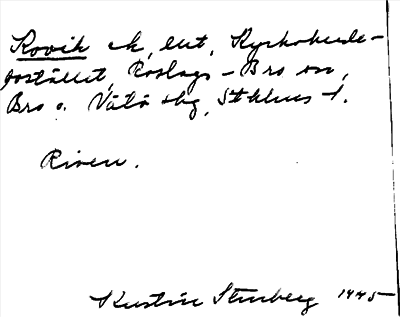 Rovik ek, lut, Kyrkoherde-
bostället, Roslags-Bro sn,
Bro o. Vätö skg, Sthlms l.
Riven.
Kerstin Stenberg 1945